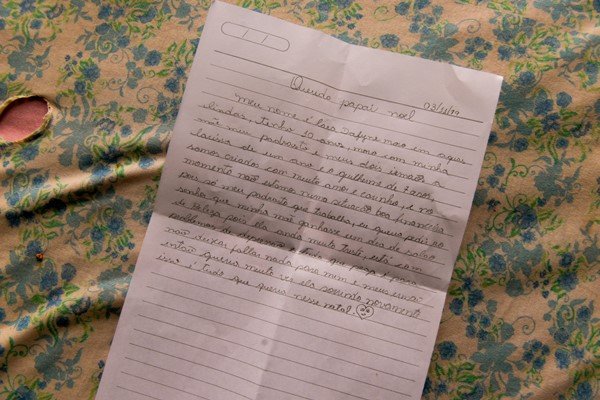 Querido papai noel 03/11/22
Meu nome é Lara Dafyne moro em aguas
lindas, tenho 10 anos, moro com minha
mãe meu padrasto meus dois irmãos a
de um ano e o guilherme de 7 anos,
somos criados com muito amor e carinho, e no
momento não estamos numa situação boa financeira
pois só meu padrasto que trabalha, eu queria pedir ao
senhor que minha mãe ganhasse um dia de salão
de beleza pois ela anda muito triste, ela com
problemas de depressão e tudo que pega é para
não deixar faltar nada para mim e meus irmãos
então queria muito ver ela sorrindo novamente
isso é tudo que queria nesse natal.